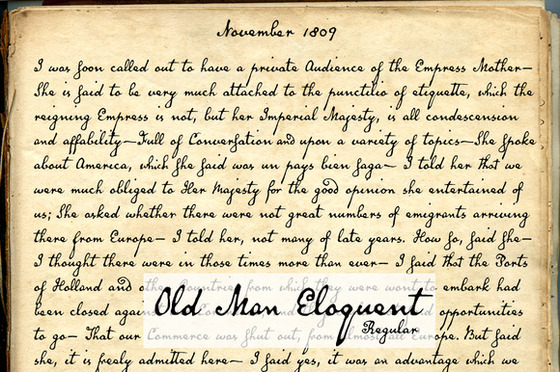 November 1809
I was soon called out to have a private Audience of the Empress Mother—
She is said to be very much attached to the punctilio of etiquette, which the
reigning Empress is not, but her Imperial Majesty, is all condescension
and affability—Full of Conversation and upon a variety of topics—She spoke
about America, which she said was un pays bien saga— I told her that we
were much obliged to Her Majesty for the good opinion she entertained of
us; She asked whether there were not great numbers of emigrants arriving
there from Europe— I told her, not many of late years. How so, said she—
I thought there were in those times more than ever— I said that the Ports
of Holland and other Countries from which they were wont to embark had
been closed against
Old Man Eloquent
opportunities
Regular
to go— That our Commerce was shut out, from almost all Europe. But said
she, it is freely admitted here— I said yes, it was an advantage which we